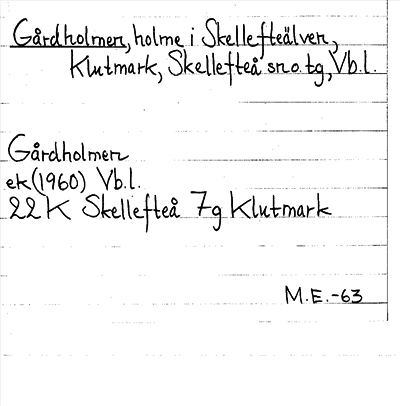 Gårdholmen, holme i Skellefteälven,
Klutmark, Skellefteå sn. o. tg, Vb. l.
Gårdholmen
ek (1960) Vb. l.
22 K Skellefteå 7g Klutmark
M.E.-63